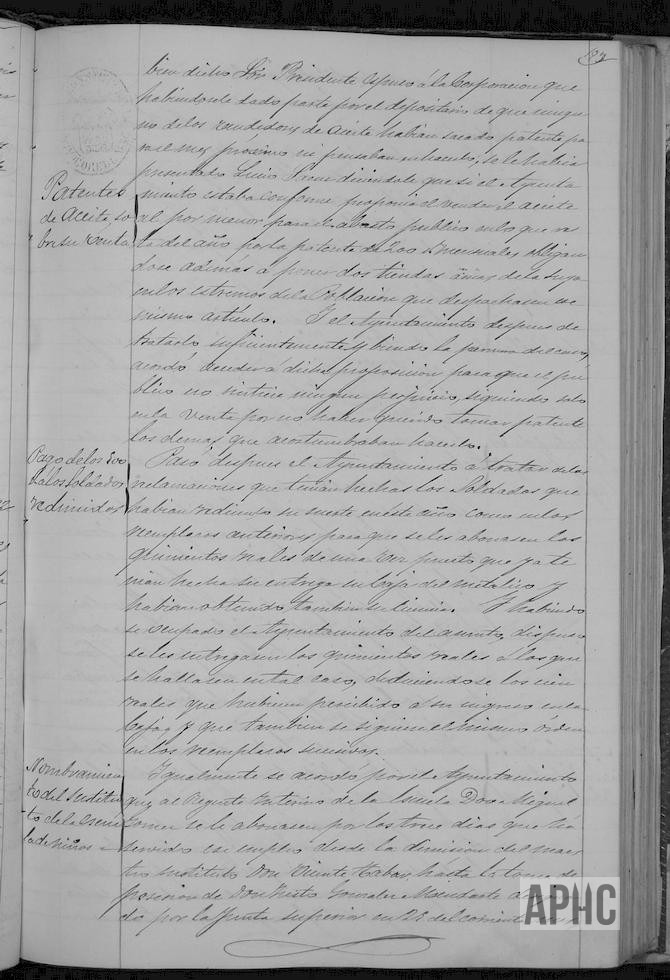 bien dicho Sor. Presidente espuso á la Corporacion que
habiendosele dado parte por el depositario de que ningu
no de los vendedores de Aceite habian sacado patente pa
ra el mes proximo ni pensaban en hacerlo, se le habia
presentado diciendole que si el Ayunta
miento estaba conforme proponia el vender el aceite
al por menor para el abasto publico en lo que res
ta del año por la patente de 200 mensuales obligan
dose además á poner dos tiendas de la suya
en los estremos de la Poblacion que despachasen ese
mismo artículo. Y el Ayuntamiento despues de
tratarlo suficientemente y viendo la del caso,
acordó acceder á dicha proposicion para que el pu
blico no sintiera ningun perjuicio, siguiendo solo
en la Venta por no haber querido tomar patente
los demas que acostumbraban hacerlo.
Patentes
de Aceite so
bre su Venta
Pasó despues el Ayuntamiento á tratar de las
reclamaciones que tenian hechas los Soldados que
habian redimido su suerte en este año como en los
reemplazos anteriores para que se les abonasen los
quinientos reales de una vez puesto que ya te
nian hecha su entrega en Caja del metalico y
habian obtenido tambien su licencia. Y habiendo
se ocupado el Ayuntamiento del asunto, dispuso
se les entregasen los quinientos reales á los que
se hallasen en tal caso, deduciendose los cien
reales que hubieren percibido á su ingreso en la
Caja, y que tambien se siguiese el mismo órden
en los reemplazos sucesivos.
Pago de los 500
á los Soldados
redimidos
Igualmente se acordó por el Ayuntamiento
que al Regente Interino de la Escuela Don Miguel
Gomez se le abonasen por los trece dias que há
servido ese empleo desde la dimision del maes
tro Sustituto Don Vicente hasta la toma de
posesion de Don Justo Gonzalez
do por la Junta Superior en 23 del corriente
Nombramien
to del Sustitu
to de la Escue
la de niños
APHC